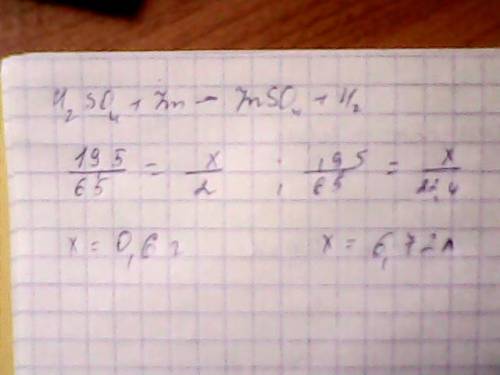 H₂SO₄ + Zn – ZnSO₄ + H₂
195/65 = x/2 ; 195/65 = x/22,4
x = 0,6 г x = 6,72 л